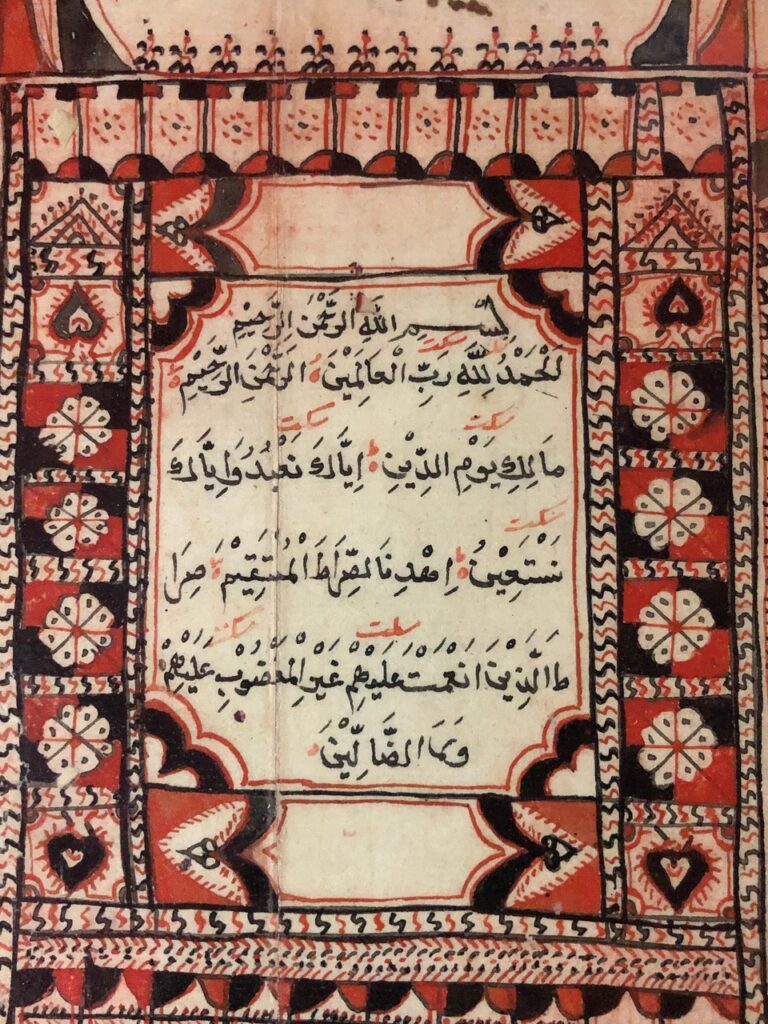 بِسْمِ اللهِ الرَّحْمٰنِ الرَّحِيْمِ
سكت
لْحَمْدُ لِلّٰهِ رَبِّ الْعَالَمِيْنَ الرَّحْمٰنِ الرَّحِيْمِ
سكت سكت
مَالِكِ يَوْمِ الدِّيْنِ اِيَّاكَ نَعْبُدُ وَاِيَّاكَ
سكت
نَسْتَعِيْنُ اِهْدِ نَا الصِّرَاطَ الْمُسْتَقِيْمَ صِرَا
سكت سكت
طَ الَّذِيْنَ اَنْعَمْتَ عَلَيْهِمْ غَيْرِ الْمَغْضُوْبِ عَلَيْهِمْ
وَلَا الضَّالِّيْنَ